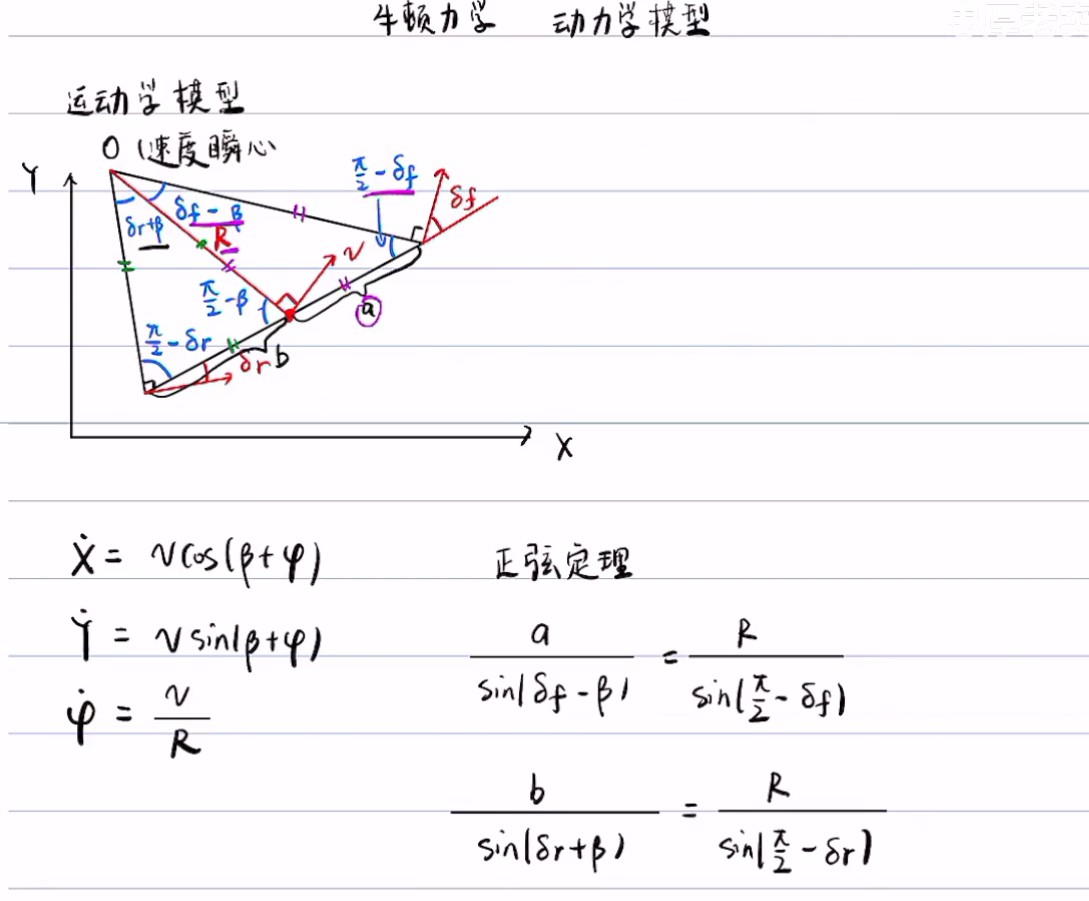 牛顿力学 动力学模型
运动学模型
O (速度瞬心
Y
π/2 - δf
δf
δr+β
δf - β
R
v
π/2 - β
a
π/2 - δr
δr
b
X
Ẋ = v cos(β+φ)
正弦定理
Ẏ = v sin(β+φ)
a / sin(δf - β) = R / sin(π/2 - δf)
φ̇ = v / R
b / sin(δr+β) = R / sin(π/2 - δr)